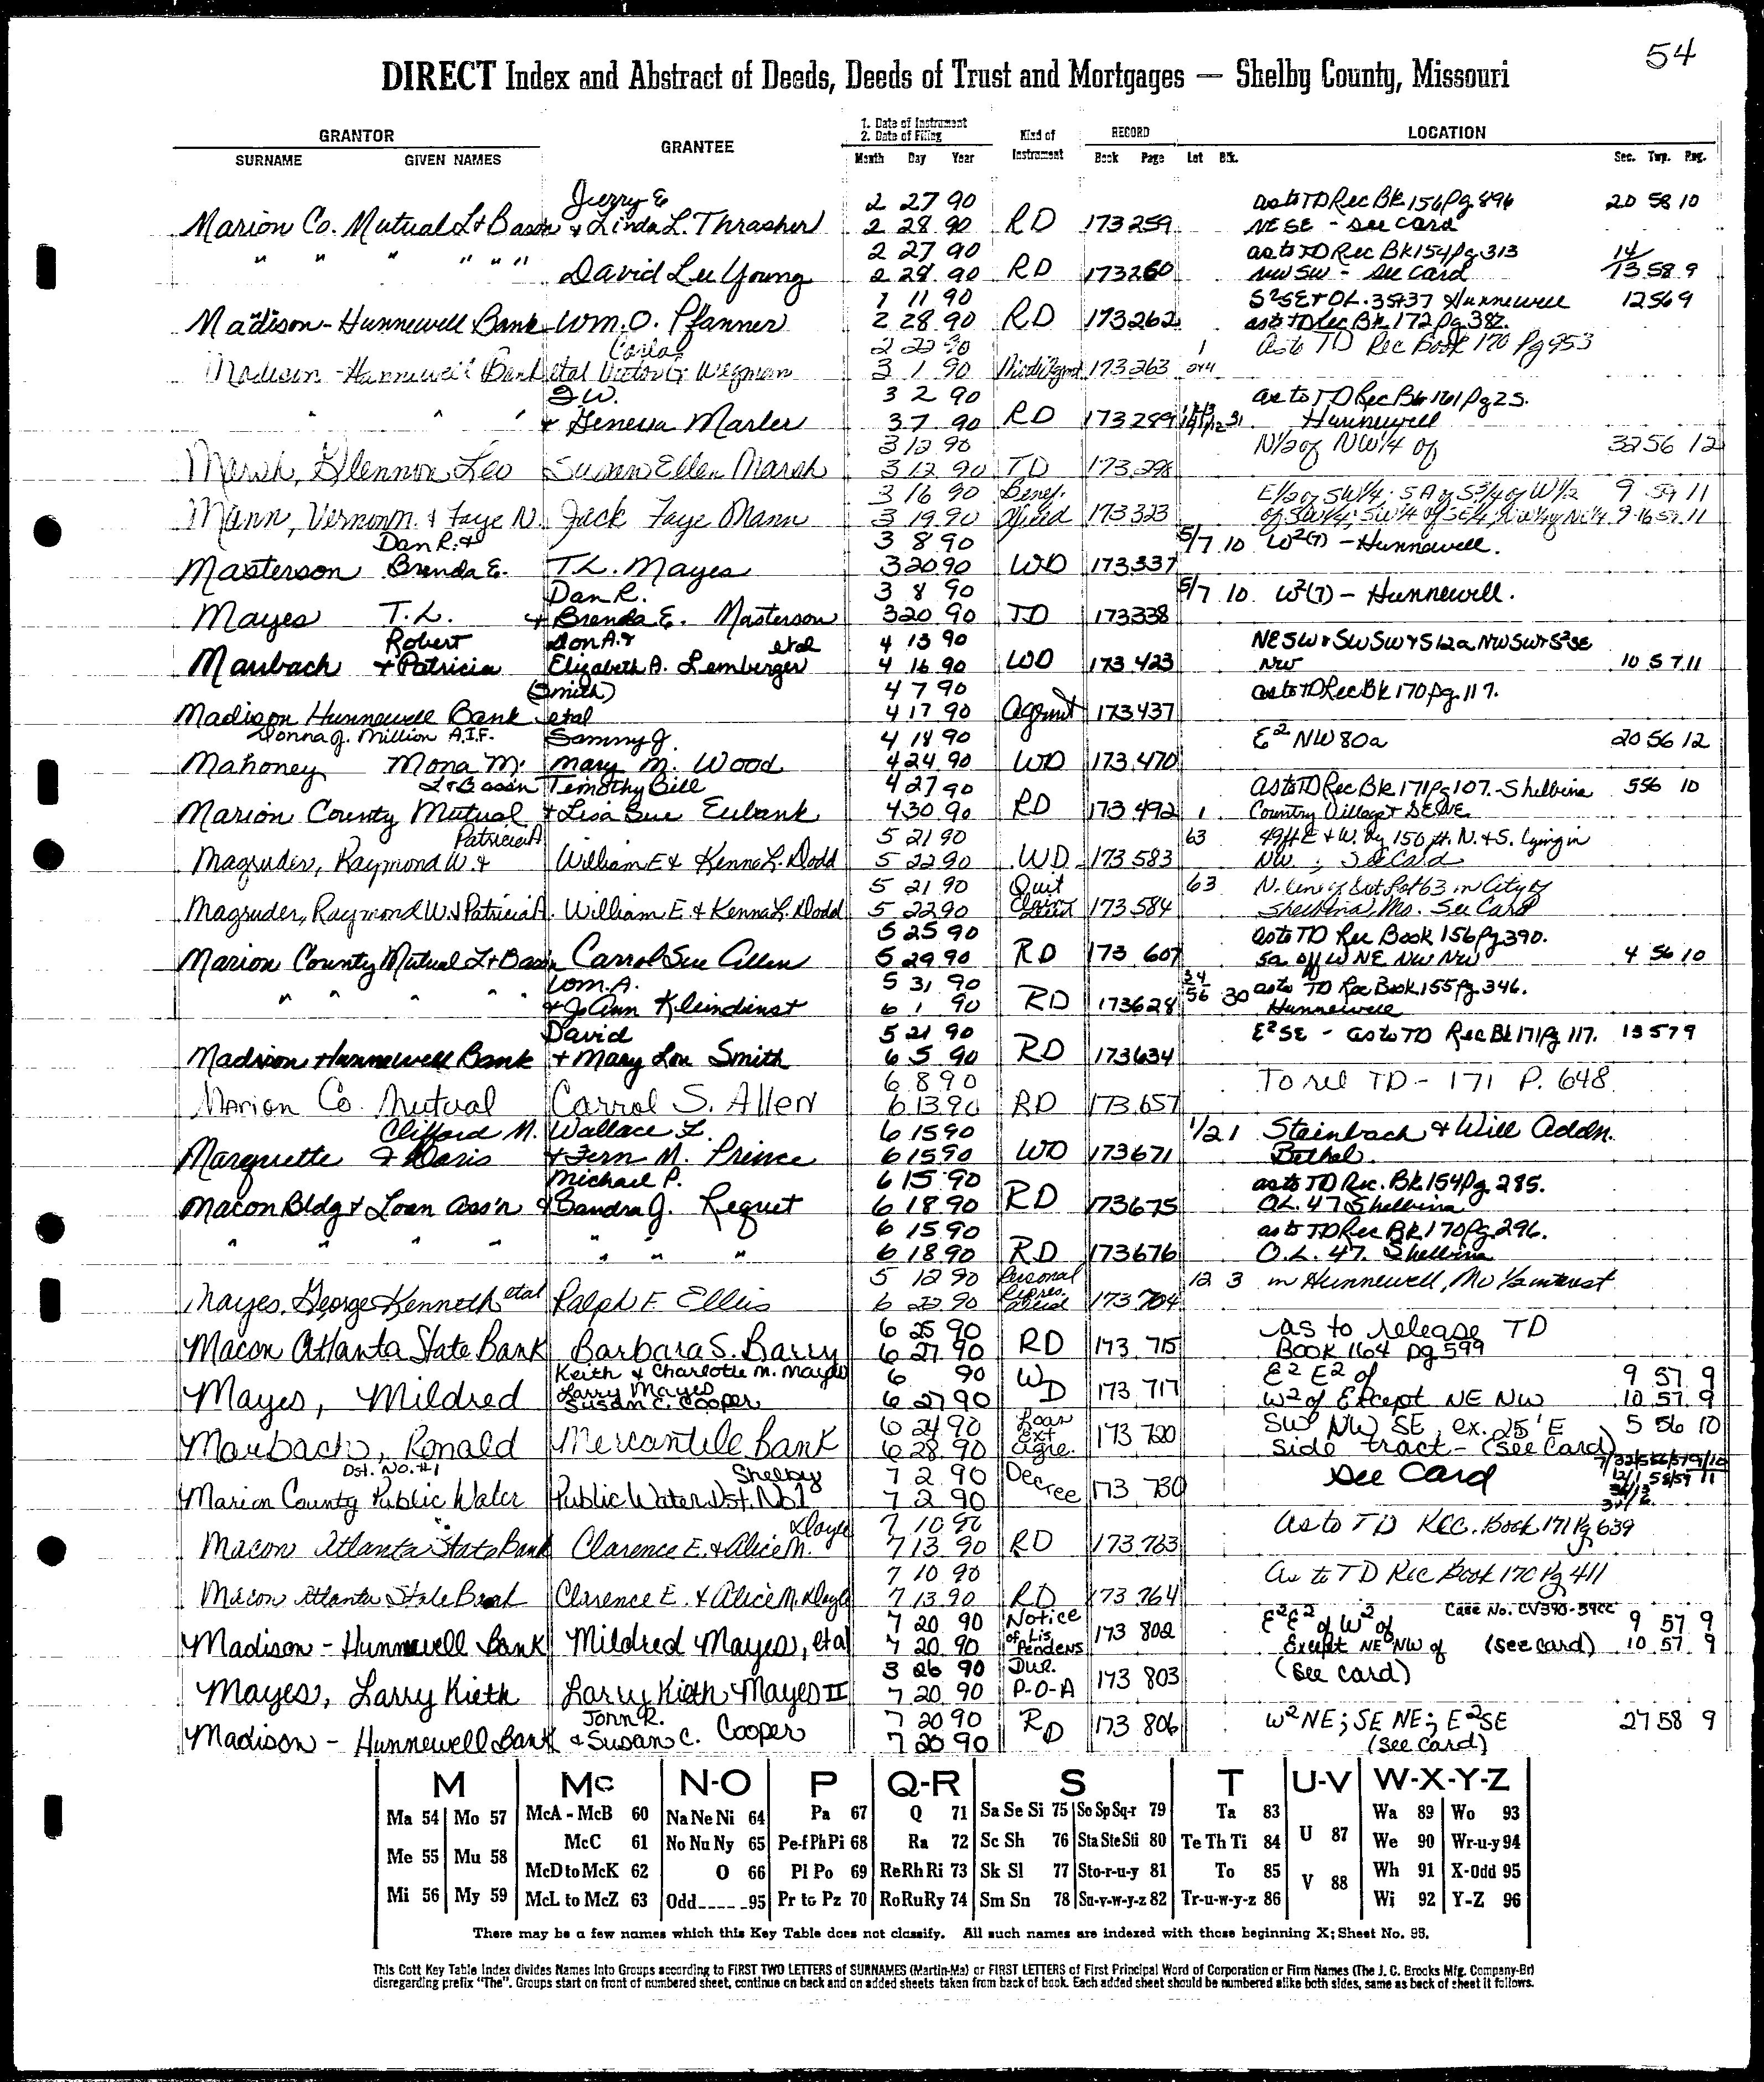 54
DIRECT Index and Abstract of Deeds, Deeds of Trust and Mortgages — Shelby County, Missouri
GRANTOR GRANTEE 1. Date of Instrument 2. Date of Filing Kind of Instrument RECORD LOCATION
SURNAME GIVEN NAMES Month Day Year Book Page Lot Blk. Sec. Twp. Rng.
Jerry E 2 27 90 as to TD Rec Bk 156 Pg 896 20 58 10
Marion Co. Mutual L+Bassn & Linda L. Thrasher 2 28 90 RD 173 259 NE SE - see card
" " " " " " 2 27 90 as to TD Rec Bk 154 Pg 313 14/
David Lee Young 2 28 90 RD 173 260 NW SW - see card 13 58 9
1 11 90 S²SE + OL. 35+37 Hunnewell 12 56 9
Madison-Hunnewell Bank Wm. O. Pfanner 2 28 90 RD 173 262 as to TD Rec Bk 172 Pg 382.
Carla 2 22 90 1 As to TD Rec Book 170 Pg 953
Madison-Hunnewell Bank etal Victor G Wegman 3 1 90 173 263
J.W. 3 2 90 as to TD Rec Bk 161 Pg 25.
" " " + Geneva Marler 3 7 90 RD 173 289 31 Hunnewell
3 12 90 N 1/2 of NW 1/4 of 32 56 12
Marsh, Glennon Leo Susan Ellen Marsh 3 12 90 TD 173 298
3 16 90 Benef. E 1/2 of SW 1/4; 5 A of S 3/4 of W 1/2 9 59 11
Mann, Vernon M. & Faye N. Jack Faye Mann 3 19 90 Deed 173 323 of SW 1/4; SW 1/4 of SE 1/4; NW 1/4 of NE 1/4 9-16 59 11
Dan R. & 3 8 90 5/7 10 W²(7) - Hunnewell.
Masterson Brenda E. T.L. Mayes 3 20 90 WD 173 337
Dan R. 3 8 90 5/7 10 W²(7) - Hunnewell.
Mayes T.L. + Brenda E. Masterson 3 20 90 TD 173 338
Robert Don A. & etal 4 13 90 NE SW & SW SW & S 12a NW SW & S²SE
Maubach + Patricia Elizabeth A. Lemberger 4 16 90 WD 173 423 NW 10 57 11
(Smith) 4 7 90 as to TD Rec Bk 170 pg. 117.
Madison Hunnewell Bank etal 4 17 90 Agrmt 173 437
Donna J. Million A.I.F. Sammy J. 4 18 90 E² NW 80a 20 56 12
Mahoney Mona M. Mary M. Wood 4 24 90 WD 173 470
L+Bassn Timothy Bill 4 27 90 As to TD Rec Bk 171 Pg 107. - Shelbina 5 56 10
Marion County Mutual + Lisa Sue Eubank 4 30 90 RD 173 492 1 Country Village + SE NE
Patricia A 5 21 90 63 49 ft E + W. by 150 ft. N. + S. lying in
Magruder, Raymond W. & William E & Kenna L. Dodd 5 22 90 WD 173 583 NW ; See Card
5 21 90 Quit 63 N. line of Lot 63 in City of
Magruder, Raymond W. & Patricia A. William E. & Kenna L. Dodd 5 22 90 Claim Deed 173 584 Shelbina, Mo. See Card
5 25 90 as to TD Rec Book 156 Pg 390.
Marion County Mutual L+Bassn Carrol Sue Allen 5 29 90 RD 173 607 5a off W NE NW NW 4 56 10
Wm. A. 5 31 90 34/ as to TD Rec Book 155 Pg. 346.
" " " " " & JoAnn Kleindienst 6 1 90 RD 173 628 56 30 Hunnewell
David 5 21 90 E²SE - as to TD Rec Bk 171 Pg 117. 13 57 9
Madison Hunnewell Bank + Mary Lou Smith 6 5 90 RD 173 634
6 8 90 To rel TD - 171 P. 648
Marion Co. Mutual Carrol S. Allen 6 13 90 RD 173 657
Clifford M. Wallace L. 6 15 90 1/2 1 Steinbach & Will Addn.
Marquette & Doris + Fern M. Prince 6 15 90 WD 173 671 Bethel.
Michael P. 6 15 90 as to TD Rec. Bk. 154 Pg. 285.
Macon Bldg & Loan Ass'n & Sandra J. Requet 6 18 90 RD 173 675 OL. 47 Shelbina
6 15 90 as to TD Rec Bk 170 Pg. 296.
" " " " " " " 6 18 90 RD 173 676 O.L. 47. Shelbina
5 12 90 Personal 12 3 in Hunnewell, Mo 1/2 interest
Mayes, George Kenneth etal Ralph F Ellis 6 22 90 Repres. Deed 173 704
6 25 90 as to release TD
Macon Atlanta State Bank Barbara S. Barry 6 27 90 RD 173 715 BOOK 164 pg 599
Keith & Charlotte M. Mayes 6 90 E² E² of 9 57 9
Mayes, Mildred Larry Mayes Susan C. Cooper 6 27 90 WD 173 717 W² of Except NE NW 10 57 9
6 24 90 Loan Ext SW NW SE, ex. 25' E 5 56 10
Maubach, Ronald Mercantile Bank 6 28 90 Agre. 173 720 side tract - (see card)
Dst. No. #1 Shelby 7 2 90 Decree See Card
Marion County Public Water Public Water Dst. No 1 7 2 90 173 730
Doyle 7 10 90 As to TD Rec. Book 171 Pg 639
Macon Atlanta State Bank Clarence E. & Alice M. 7 13 90 RD 173 763
7 10 90 As to TD Rec Book 170 Pg 411
Macon Atlanta State Bank Clarence E. & Alice M. Doyle 7 13 90 RD 173 764
7 20 90 Notice E²E² of W² of Case No. CV390-39CC 9 57 9
Madison - Hunnewell Bank Mildred Mayes, etal 7 20 90 of Lis Pendens 173 802 Except NE NW of (see card) 10 57 9
3 26 90 Dur. (see card)
Mayes, Larry Kieth Larry Kieth Mayes II 7 20 90 P-O-A 173 803
John R. 7 20 90 W²NE; SE NE; E²SE 27 58 9
Madison - Hunnewell Bank & Susan C. Cooper 7 20 90 RD 173 806 (see card)
M Mc N-O P Q-R S T U-V W-X-Y-Z
Ma 54 Mo 57 McA - McB 60 Na Ne Ni 64 Pa 67 Q 71 Sa Se Si 75 So Sp Sq-r 79 Ta 83 U 87 Wa 89 Wo 93
Me 55 Mu 58 McC 61 No Nu Ny 65 Pe-f Ph Pi 68 Ra 72 Sc Sh 76 Sta Ste Sti 80 Te Th Ti 84 We 90 Wr-u-y 94
McD to McK 62 O 66 Pl Po 69 Re Rh Ri 73 Sk Sl 77 Sto-r-u-y 81 To 85 V 88 Wh 91 X-Odd 95
Mi 56 My 59 McL to McZ 63 Odd____95 Pr to Pz 70 Ro Ru Ry 74 Sm Sn 78 Su-v-w-y-z 82 Tr-u-w-y-z 86 Wi 92 Y-Z 96
There may be a few names which this Key Table does not classify. All such names are indexed with those beginning X; Sheet No. 95.
This Cott Key Table Index divides Names into Groups according to FIRST TWO LETTERS of SURNAMES (Martin-Ma) or FIRST LETTERS of First Principal Word of Corporation or Firm Names (The J. C. Brooks Mfg. Company-Br)
disregarding prefix "The". Groups start on front of numbered sheet, continue on back and on added sheets taken from back of book. Each added sheet should be numbered alike both sides, same as back of sheet it follows.